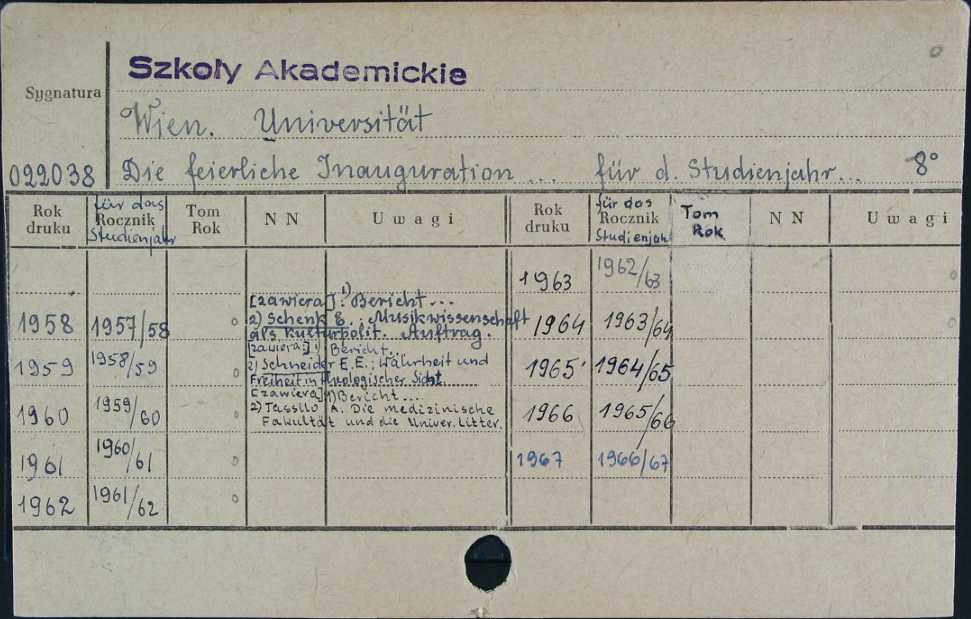 Szkoły Akademickie
Sygnatura
Wien. Universität
022038 Die feierliche Inauguration ... für d. Studienjahr... 8°
Rok druku für das Rocznik Studienjahr Tom Rok NN Uwagi Rok druku für das Rocznik Studienjahr Tom Rok NN Uwagi
1963 1962/63
[zawiera]: 1) Bericht...
1958 1957/58 2) Schenk E.. Musikwissenschaft 1964 1963/64
als kulturpolit. Auftrag.
[zawiera:] 1) Bericht...
1959 1958/59 2) Schneider E.E.: Wahrheit und 1965 1964/65
Freiheit in theologischer Sicht
[zawiera] 1) Bericht....
1960 1959/60 2) A. Die medizinische 1966 1965/66
Fakultät und die Univer. Litter.
1961 1960/61 1967 1966/67
1962 1961/62